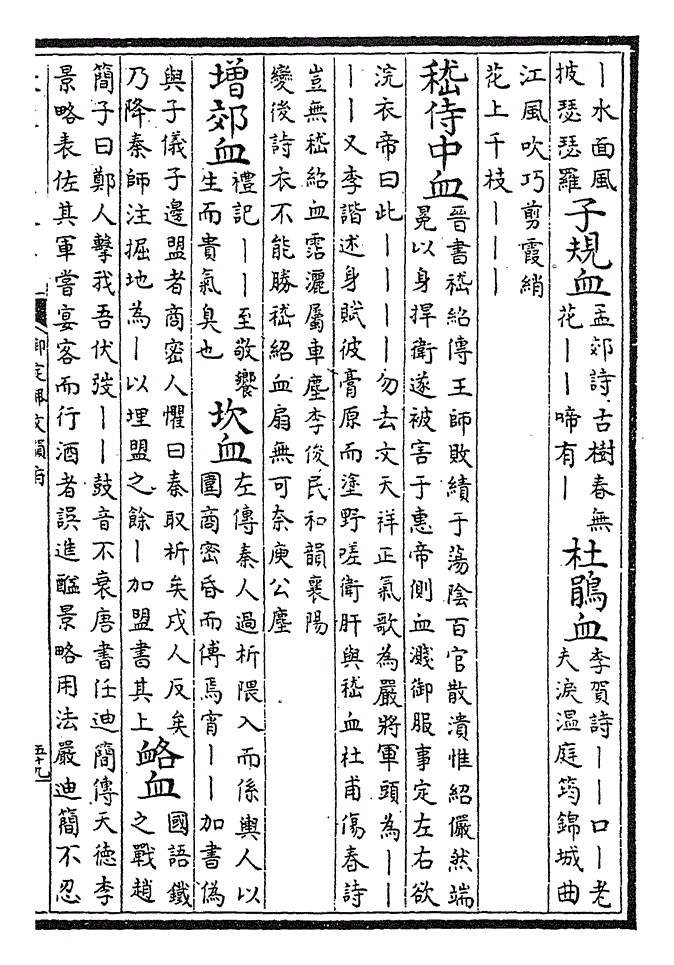 丨水面風
披瑟瑟羅
子規血
孟郊詩古樹春無
花丨丨啼有丨
杜鵑血
李賀詩丨丨口丨老
夫淚温庭筠錦城曲
江風吹巧剪霞綃
花上千枝丨丨丨
嵇侍中血
晉書嵇紹傳王師敗績于蕩陰百官散潰惟紹儼然端
冕以身捍衛遂被害于惠帝側血濺御服事定左右欲
浣衣帝曰此丨丨丨丨勿去文天祥正氣歌為嚴將軍頭為丨丨
丨丨又李諧述身賦彼膏原而塗野嗟衛肝與嵇血杜甫傷春詩
豈無嵇紹血霑灑屬車塵李俊民和韻襄陽
變後詩衣不能勝嵇紹血扇無可奈庾公塵
增郊血
禮記丨丨至敬饗
生而貴氣臭也
坎血
左傳秦人過析隈入而係輿人以
圍商密昏而傅焉宵丨丨加書偽
與子儀子邊盟者商密人懼曰秦取析矣戍人反矣
乃降秦師注掘地為丨以埋盟之餘丨加盟書其上
衉血
國語鐵
之戰趙
簡子曰鄭人擊我吾伏弢丨丨鼓音不衰唐書任迪簡傳天德李
景略表佐其軍嘗宴客而行酒者誤進醯景略用法嚴迪簡不忍
御定佩文韻府
五十九